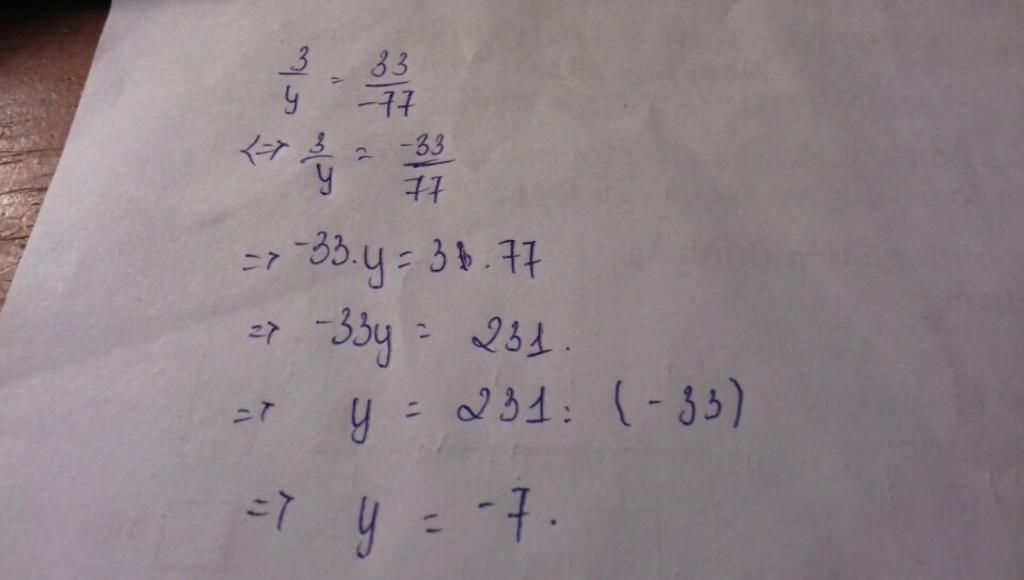 3/y = 33/-77
<=> 3/y = -33/77
=> -33.y = 3.77
=> -33y = 231.
=> y = 231: (-33)
=> y = -7.